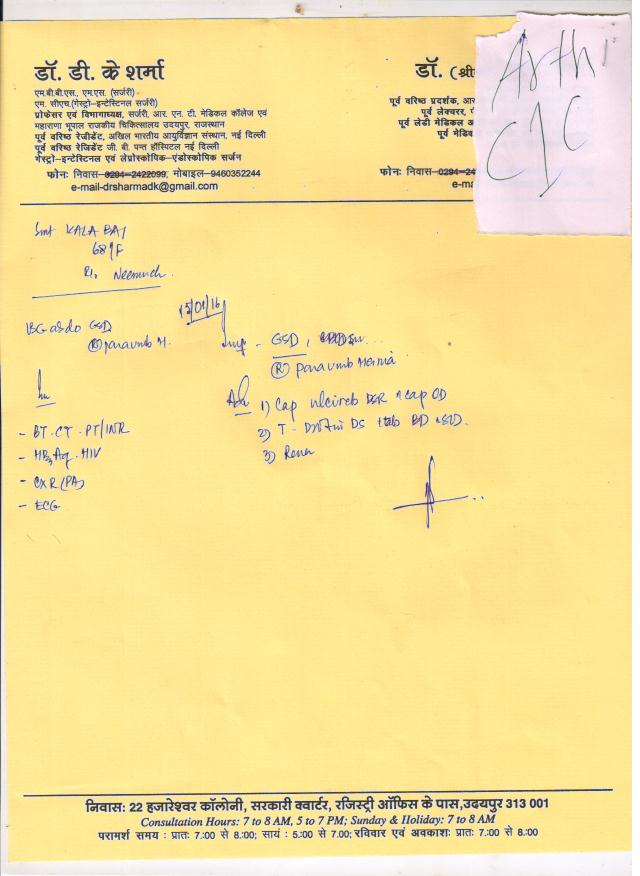 डॉ. डी. के शर्मा
एम.बी.बी.एस., एम.एस. (सर्जरी)
एम. सीएच.(गेस्ट्रो-इन्टेस्टिनल सर्जरी)
प्रोफेसर एवं विभागाध्यक्ष, सर्जरी, आर. एन. टी. मेडिकल कॉलेज एवं
महाराणा भूपाल राजकीय चिकित्सालय उदयपुर, राजस्थान
पूर्व वरिष्ठ रेजीडेंट, अखिल भारतीय आयुर्विज्ञान संस्थान, नई दिल्ली
पूर्व वरिष्ठ रेजिडेंट जी. बी. पन्त हॉस्पिटल नई दिल्ली
गेस्ट्रो-इन्टेस्टिनल एवं लेप्रोस्कोपिक-एंडोस्कोपिक सर्जन
फोनः निवास-0294-2422099, मोबाइल-9460352244
e-mail-drsharmadk@gmail.com
डॉ. (श्री
पूर्व वरिष्ठ प्रदर्शक, आर
पूर्व लेक्चरर,
पूर्व लेडी मेडिकल अ
पूर्व मेडि
फोनः निवास-0294-24
e-ma
Arthi
CIC
Smt KALA BAI
68y/F
R/o Neemuch.
15/01/16
GSD
(R)
- BT. CT. PT/INR
- HIV
- CXR (PA)
- ECG
Imp - GSD,
(R)
Adv 1) Cap DSR 1 cap OD
2) T- DS 1 tab BD
3)
निवास: 22 हजारेश्वर कॉलोनी, सरकारी क्वार्टर, रजिस्ट्री ऑफिस के पास,उदयपुर 313 001
Consultation Hours: 7 to 8 AM, 5 to 7 PM; Sunday & Holiday: 7 to 8 AM
परामर्श समय : प्रातः 7:00 से 8:00; सायं : 5:00 से 7.00; रविवार एवं अवकाशः प्रातः 7:00 से 8:00